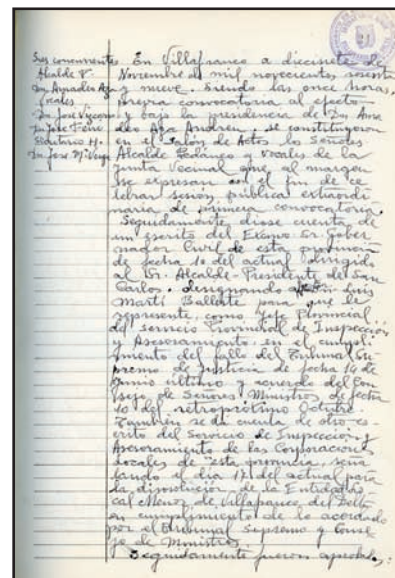 Sres concurrentes
Alcalde P.
Dn Amadeo Aza
Vocales
Dn José
Dn José
Bautario H.
Dn José Mª
En Villafranco a diecisiete de
Noviembre de mil novecientos sesenta
y nueve. Siendo las once horas,
previa convocatoria al efecto
y bajo la presidencia de Don Ama
deo Aza Andreu, se constituyeron
en el Salón de Actos los Señores
Alcalde Pedáneo y vocales de la
Junta Vecinal que al margen
se expresan con el fin de ce
lebrar sesión pública extraordi
naria de primera convocatoria.
Seguidamente diose cuenta de
un escrito del Excmo Sr. Gober
nador Civil de esta provincia
de fecha 10 del actual dirigido
al Sr. Alcalde-Presidente de San
Carlos, designando a Dn. Luis
Martí Ballesté para que le
represente, como Jefe Provincial
del servicio Provincial de Inspección
y Asesoramiento, en el cumpli
miento del fallo del Tribunal Su
premo de Justicia de fecha 14 de
Junio último y acuerdo del Con
sejo de Señores Ministros de fecha
10 del retropróximo Octubre.
También se da cuenta de otro es
crito del Servicio de Inspección y
Asesoramiento de las Corporaciones
Locales de esta provincia, seña
lando el día 17 del actual para
la disolución de la Entidad Lo
cal Menor de Villafranco del Delta
en cumplimiento de lo acordado
por el Tribunal Supremo y Conse
jo de Ministros.
Seguidamente fueron aproba